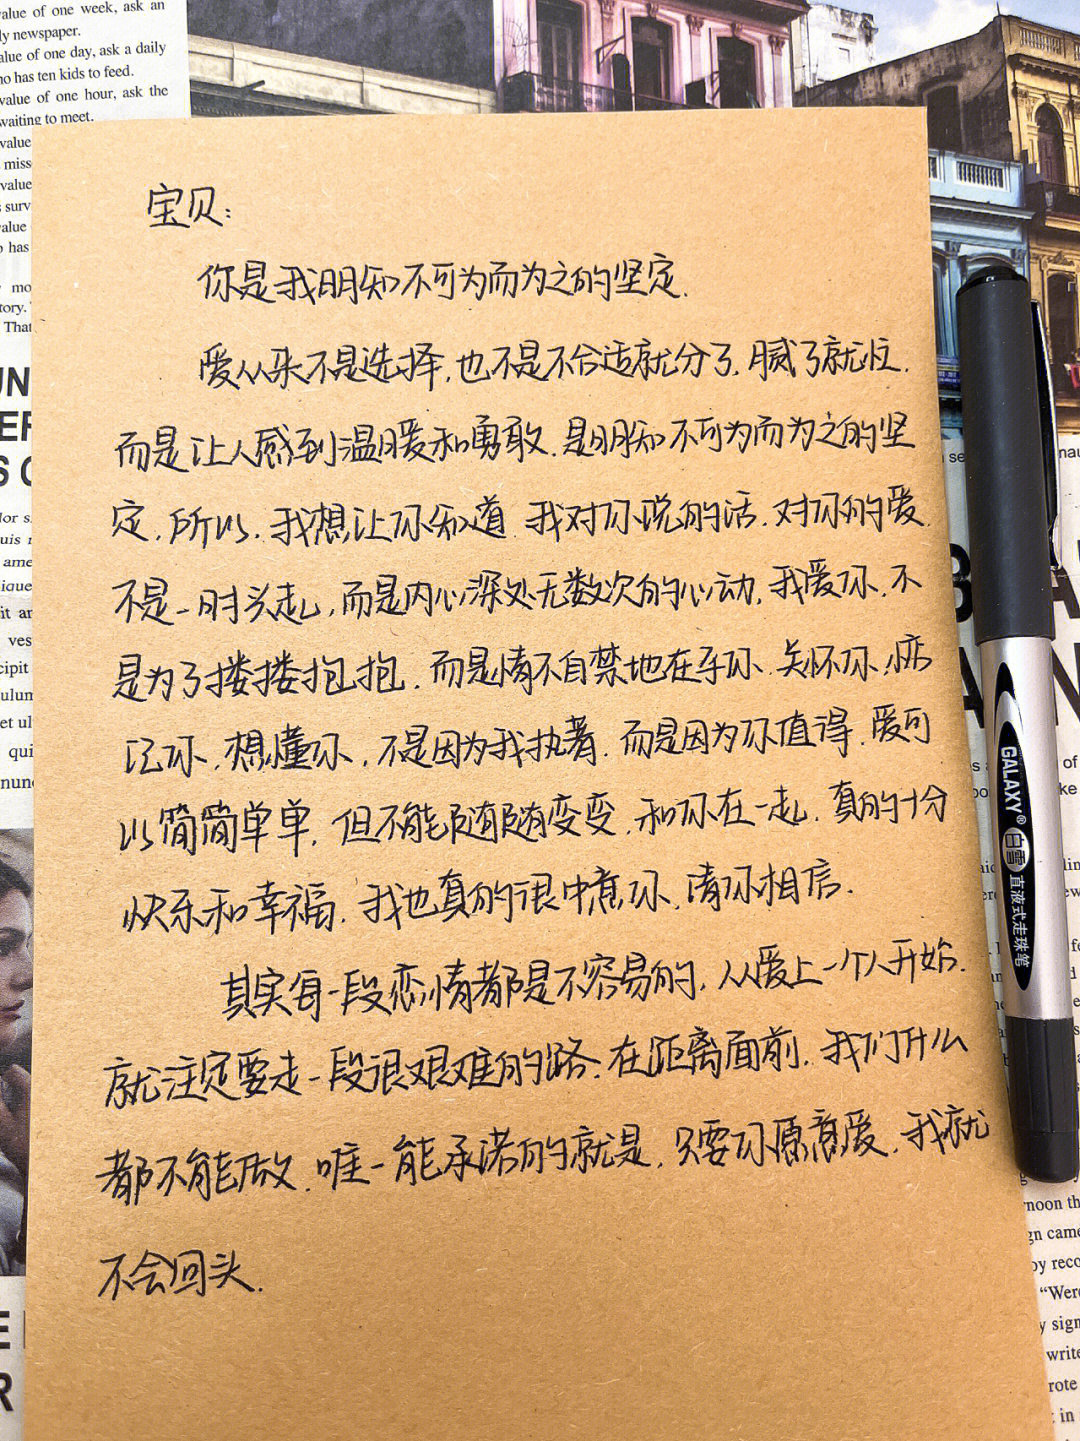 value of one week, ask an
ly newspaper.
alue of one day, ask a daily
ho has ten kids to feed.
value of one hour, ask the
waiting to meet.
宝贝:
你是我明知不可为而为之的坚定.
爱从来不是选择,也不是不合适就分了,腻了就忘.
而是让人感到温暖和勇敢.是明知不可为而为之的坚
定.所以.我想让你知道.我对你说的话.对你的爱.
不是一时头起,而是内心深处无数次的心动,我爱你.不
是为了搂搂抱抱.而是情不自禁地在乎你.关怀你.惦
记你.想懂你.不是因为我执著.而是因为你值得.爱可
以简简单单.但不能随随变变.和你在一起.真的十分
快乐和幸福.我也真的很中意你.请你相信.
其实每一段恋情都是不容易的,从爱上一个人开始.
就注定要走一段很艰难的路.在距离面前.我们什么
都不能做.唯一能承诺的就是.只要你愿意爱.我就
不会回头.
GALAXY®
白雪
直液式走珠笔